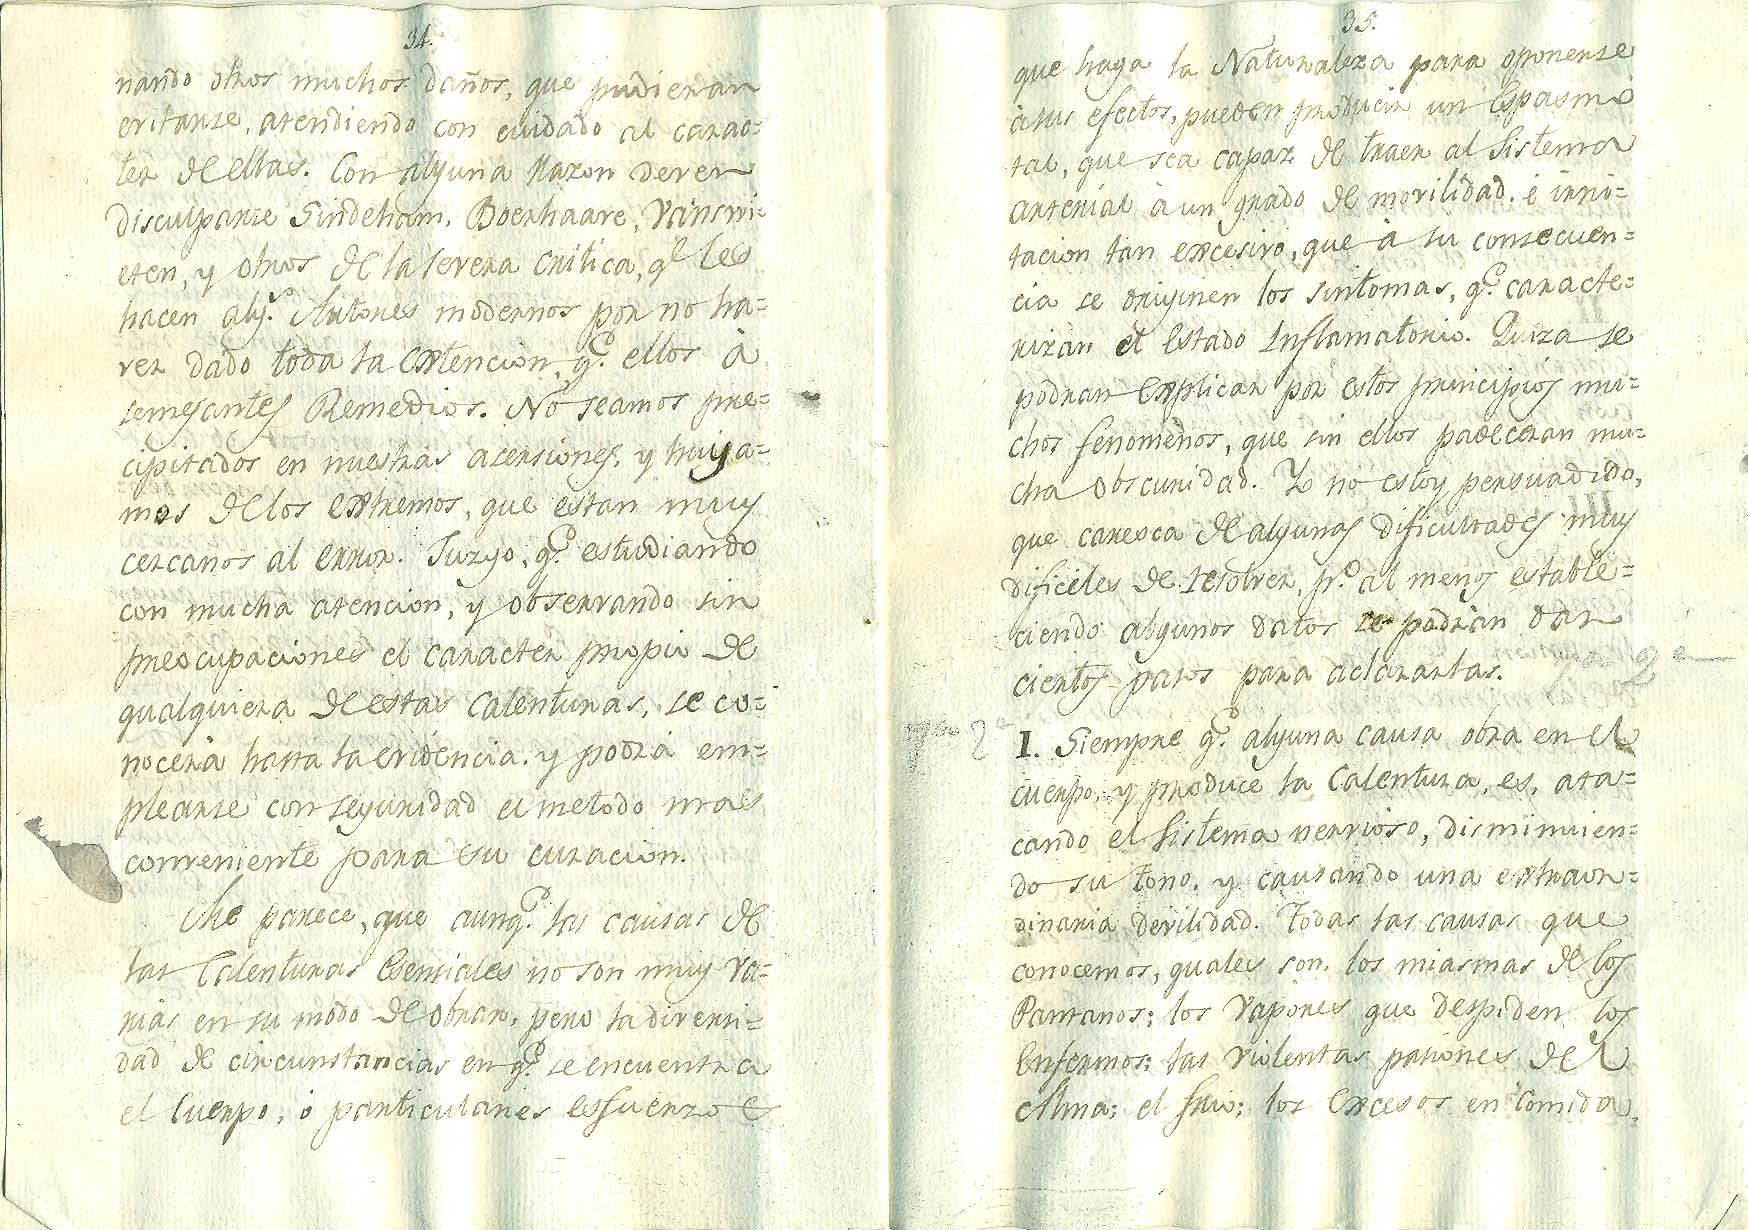 34.
nando otros muchos daños, que pudieran
evitarse, atendiendo con cuidado al carac=
ter de ellas. Con alguna Razon deven
disculparse Sindeham, Boerhaave, Vanswi=
eten, y otros de la severa critica, q.e les
hacen alg.s Autores modernos por no ha=
ver dado toda la extencion, q.e ellos à
semejantes Remedios. No seamos pre=
cipitados en nuestras acersiones, y huiga=
mos de los extremos, que estan muy
cercanos al error. Juzgo, q.e estudiando
con mucha atencion, y observando sin
preocupaciones el caracter propio de
qualquiera de estas Calenturas, se co=
nocerà hasta la evidencia, y podrá em=
plearse con seguridad el metodo mas
conveniente para su curacion.
Me parece, que aunq.e las causas de
las Calenturas Esenciales no son muy va=
rias en su modo de obrar, pero la diversi=
dad de circunstancias en q.e se encuentra
el Cuerpo, ò particulares esfuerzos
35.
que haga la Naturaleza para oponerse
à sus efectos, pueden producir un Espasmo
tal, que sea capaz de traer al Sistema
arterial à un grado de movilidad, è irri=
tacion tan excesivo, que à su consecuen=
cia se originen los sintomas, q.e caracte=
rizan el Estado Inflamatorio. Quiza se
podran explicar por estos principios mu=
chos fenomenos, que sin ellos padeceran mu=
cha obscuridad. Yo no estoy persuadido,
que caresca de algunas dificultades muy
dificiles de resolver, p.o al menos estable=
ciendo algunos datos se podrán dar
ciertos pasos para aclararlas.
2ª
2ª
I. Siempre q.e alguna causa obra en el
cuerpo, y produce la Calentura, es, ata=
cando el Sistema nervioso, disminuien=
do su Tono, y causando una extraor=
dinaria devilidad. Todas las causas que
conocemos, quales son, los miasmas de los
Pantanos; los Vapores que despiden los
Enfermos; las violentas pasiones del
Alma; el frio; los Excesos en Comida,